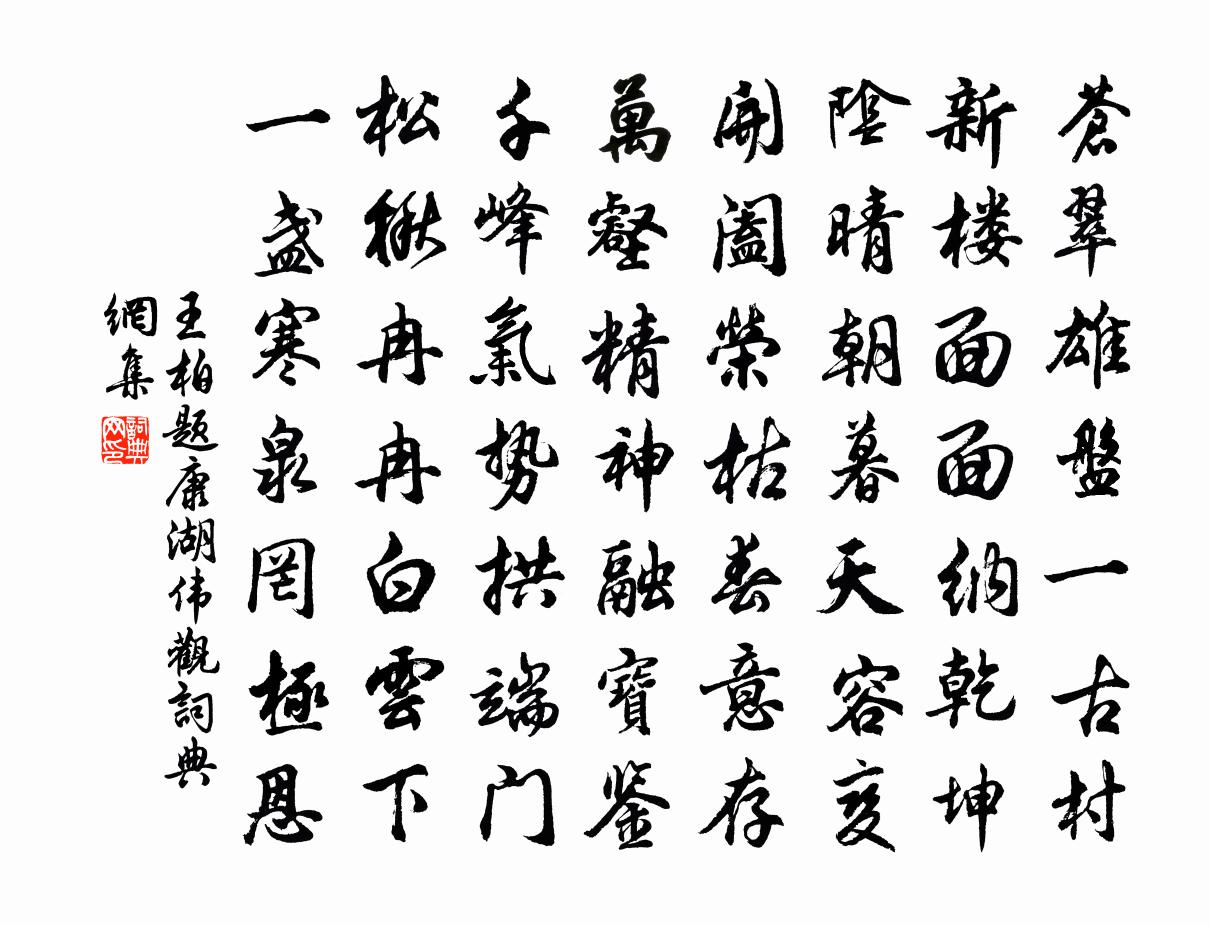 蒼翠雄盤一古村
新楼面面納乾坤
陰晴朝暮天容変
開闔榮枯春意存
萬壑精神融寶鉴
千峰氣势拱端门
松楸冉冉白雲下
一盏寒泉罔極恩
王柏题康湖伟觀詞典
網集
詞典
网印